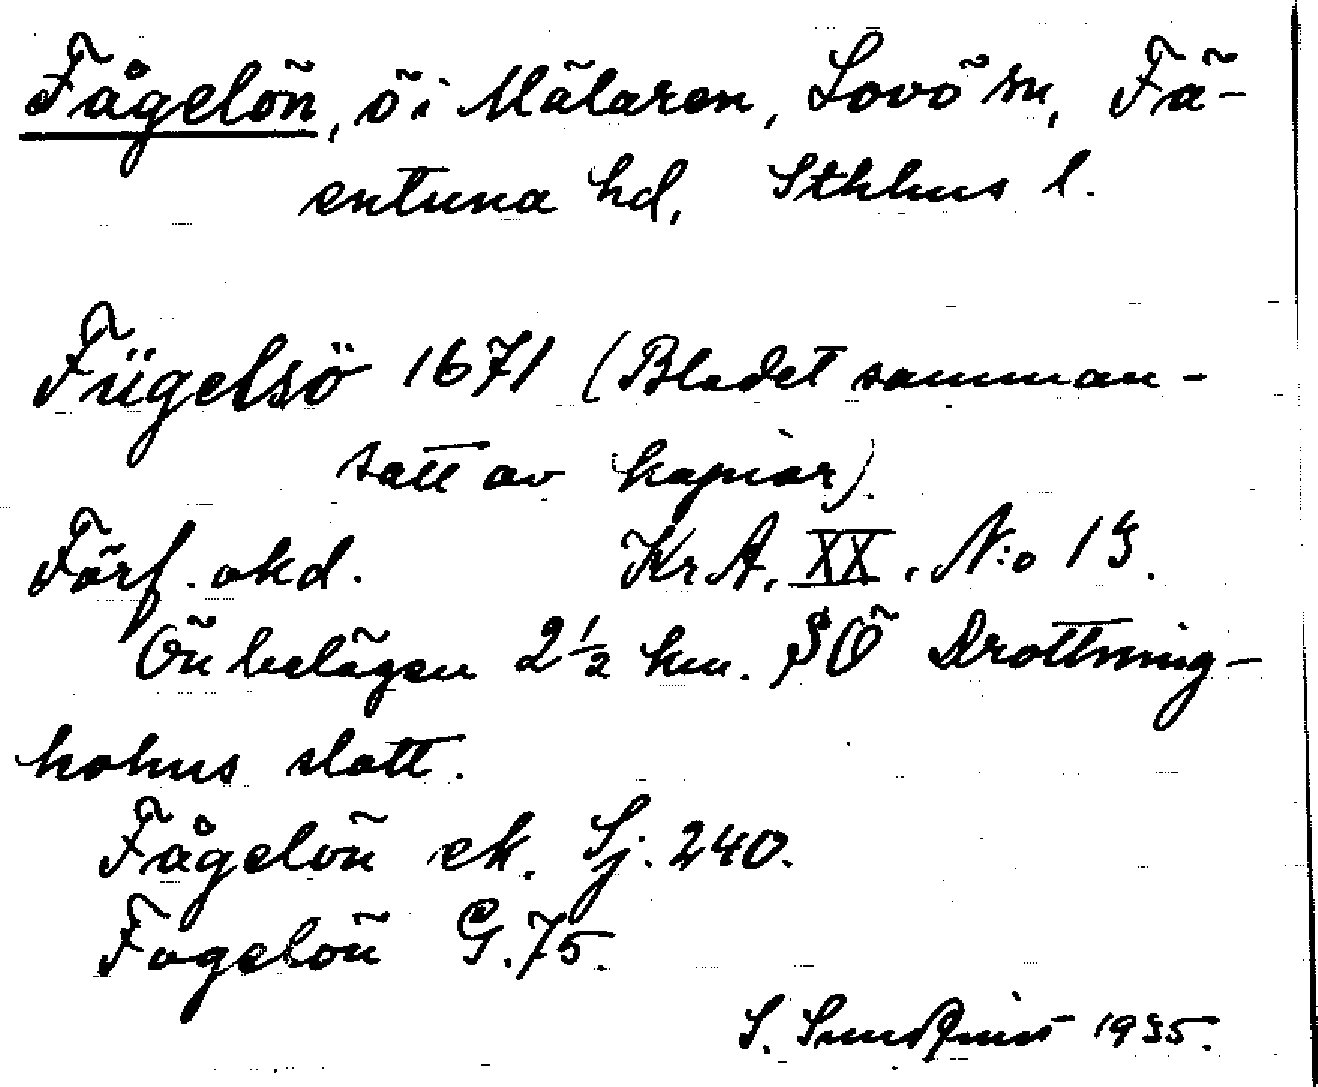 Fågelön, ö i Mälaren, Lovö sn, Fä-
entuna hd, Sthlms l.
Fügelsö 1671 (Bladet samman-
satt av kopior)
Förf. okd. Kr A. XX. N:o 13.
Ön belägen 2 1/2 km. SÖ Drottning-
holms slott.
Fågelön ek. Sj. 240.
Fogelön G. 75.
S. Sundquist 1935.